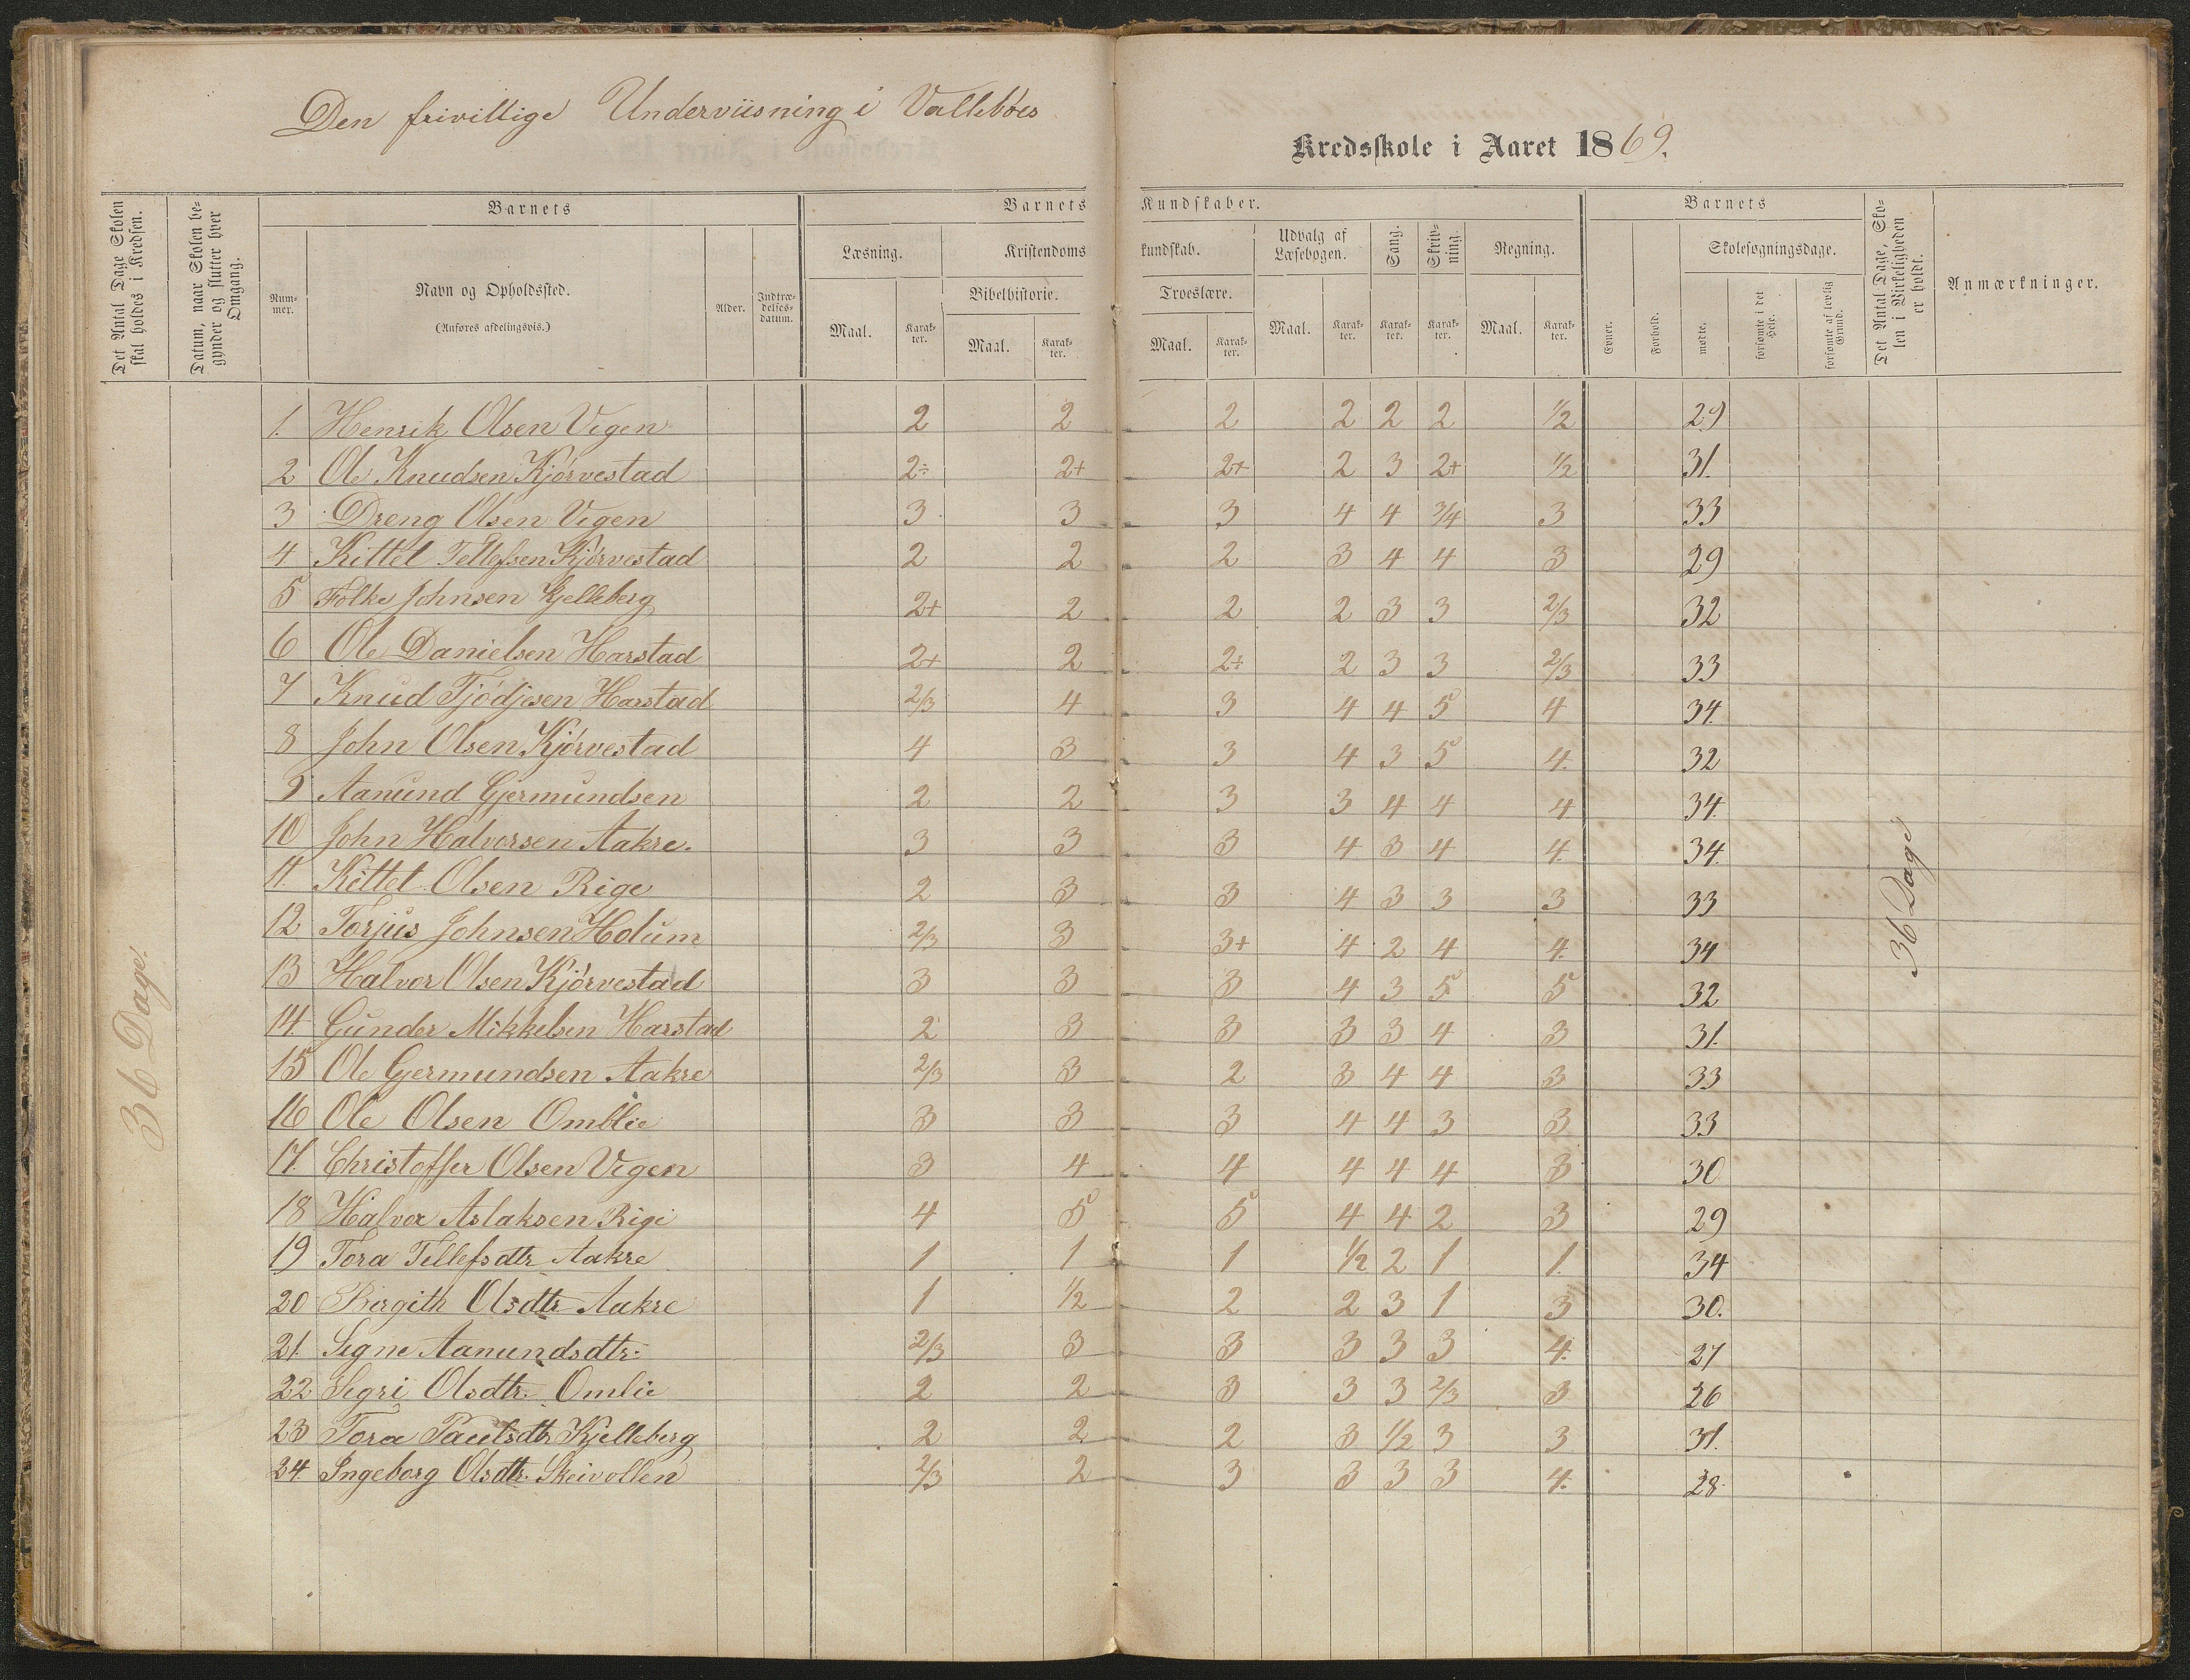 Den frivillige Underviisning i Valleböes
Kredsskole i Aaret 1869.
Det Antal Dage Skolen skal holdes i Kredsen.
Datum, naar Skolen begynder og slutter hver Omgang.
Barnets
Barnets Kundskaber.
Barnets
Det Antal Dage, Skolen i Virkeligheden er holdt.
Anmærkninger.
Nummer.
Navn og Opholdssted.
(Anføres afdelingsvis.)
Alder.
Indtrædelsesdatum.
Læsning.
Kristendomskundskab.
Udvalg af Læsebogen.
Sang.
Skrivning.
Regning.
Evner.
Forhold.
Skolesøgningsdage.
Bibelhistorie.
Troeslære.
Maal. Karakter. Maal. Karakter. Maal. Karakter. Maal. Karakter. Karakter. Karakter. Maal. Karakter.
mødte.
forsømte i det Hele.
forsømte af lovlig Grund.
1. Henrik Olsen Vigen 2 2 2 2 2 2 1/2 29
2 Ole Knudsen Kjörvestad 2÷ 2+ 2+ 2 3 2+ 1/2 31.
3 Dreng Olsen Vigen 3 3 3 4 4 3/4 3 33
4 Kittel Tellefsen Kjörvestad 2 2 2 3 4 4 3 29
5 Folke Johnsen Kjelleberg 2+ 2 2 2 3 3 2/3 32
6 Ole Danielsen Harstad 2+ 2 2÷ 2 3 3 2/3 33
7 Knud Tjödjesen Harstad 2/3 4 3 4 4 5 4 34.
8 John Olsen Kjörvestad 4 3 3 4 3 5 4. 32
9 Aanund Gjermundsen 2 2 3 3 4 4 4 34.
10 John Halvorsen Aakre. 3 3 3 4 3 4 4. 34.
11. Kittel Olsen Rige 2 3 3 4 3 3 3 33
12. Torjus Johnsen Holum 2/3 3 3+ 4 2 4 4. 34
13 Halvor Olsen Kjörvestad 3 3 3 4 3 5 5 32
14 Gunder Mikkelsen Harstad 2 3 3 3 3 4 3 31.
15 Ole Gjermundsen Aakre 2/3 3 2 3 4 4 3 33
16 Ole Olsen Omblie 3 3 3 4 4 3 3 33
17. Christoffer Olsen Vigen 3 4 4 4 4 4 3 30
18 Halvor Aslaksen Rige 4 5 5 4 4 2 3 29
19 Tora Tellefsdtr Aakre 1 1 1 1/2 2 1 1. 34
20 Birgith Olsdtr Aakre 1 1/2 2 2 3 1 3 30.
21. Signe Aanundsdtr: 2/3 3 3 3 3 3 4. 27
22 Sigri Olsdtr. Omlie 2 2 3 3 3 2/3 3 26
23 Tora Paulsdtr Kjelleberg 2 2 2 3 1/2 3 3 31.
24. Ingeborg Olsdtr. Skeivollen 2/3 2 3 3 3 3 4. 28.
36 Dage.
36 Dage